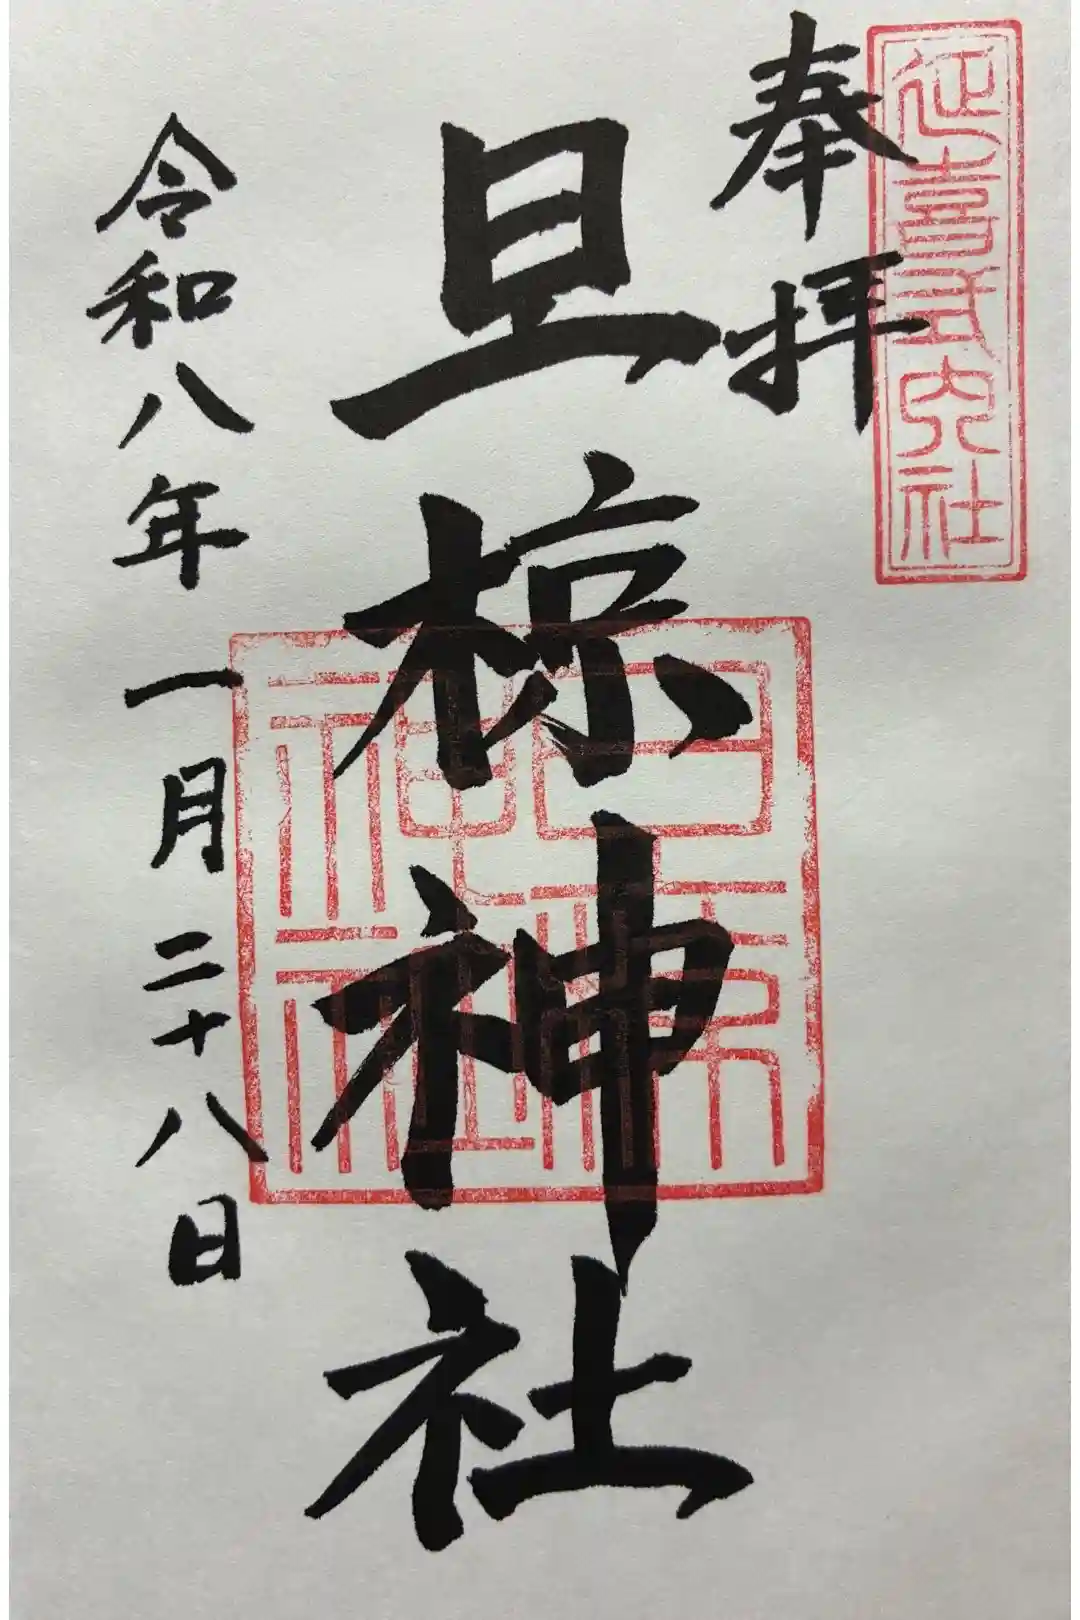 延喜式内社
奉拝
旦椋神社
旦椋神社
令和八年一月二十八日